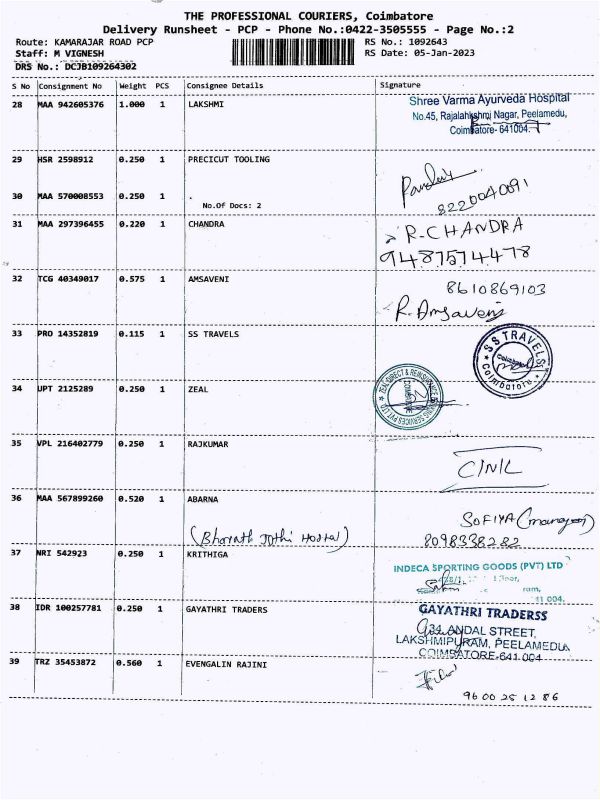 THE PROFESSIONAL COURIERS, Coimbatore
Delivery Runsheet - PCP - Phone No.:0422-3505555 - Page No.:2
Route: KAMARAJAR ROAD PCP RS No.: 1092643
Staff: M VIGNESH RS Date: 05-Jan-2023
DRS No.: DCJB109264302
S No Consignment No Weight PCS Consignee Details Signature
28 MAA 942605376 1.000 1 LAKSHMI
Shree Varma Ayurveda Hospital
No.45, Rajalakshmi Nagar, Peelamedu,
Coimbatore- 641004.
29 HSR 2598912 0.250 1 PRECICUT TOOLING
30 MAA 570008553 0.250 1 .
No.Of Docs: 2
8220040091
31 MAA 297396455 0.220 1 CHANDRA
R-CHANDRA
9487574478
32 TCG 40349017 0.575 1 AMSAVENI
8610869103
R. Amsaveni
33 PRO 14352819 0.115 1 SS TRAVELS
SS TRAVELS
Coimbatore
34 UPT 2125289 0.250 1 ZEAL
35 VPL 216402779 0.250 1 RAJKUMAR
36 MAA 567899260 0.520 1 ABARNA
SOFIYA (manager)
(Bharath Jothi Hostel) 8098338282
37 NRI 542923 0.250 1 KRITHIGA
INDECA SPORTING GOODS (PVT) LTD
38 IDR 100257781 0.250 1 GAYATHRI TRADERS
GAYATHRI TRADERSS
34, ANDAL STREET,
LAKSHMIPURAM, PEELAMEDU,
COIMBATORE-641 004
39 TRZ 35453872 0.560 1 EVENGALIN RAJINI
96 00 25 12 86